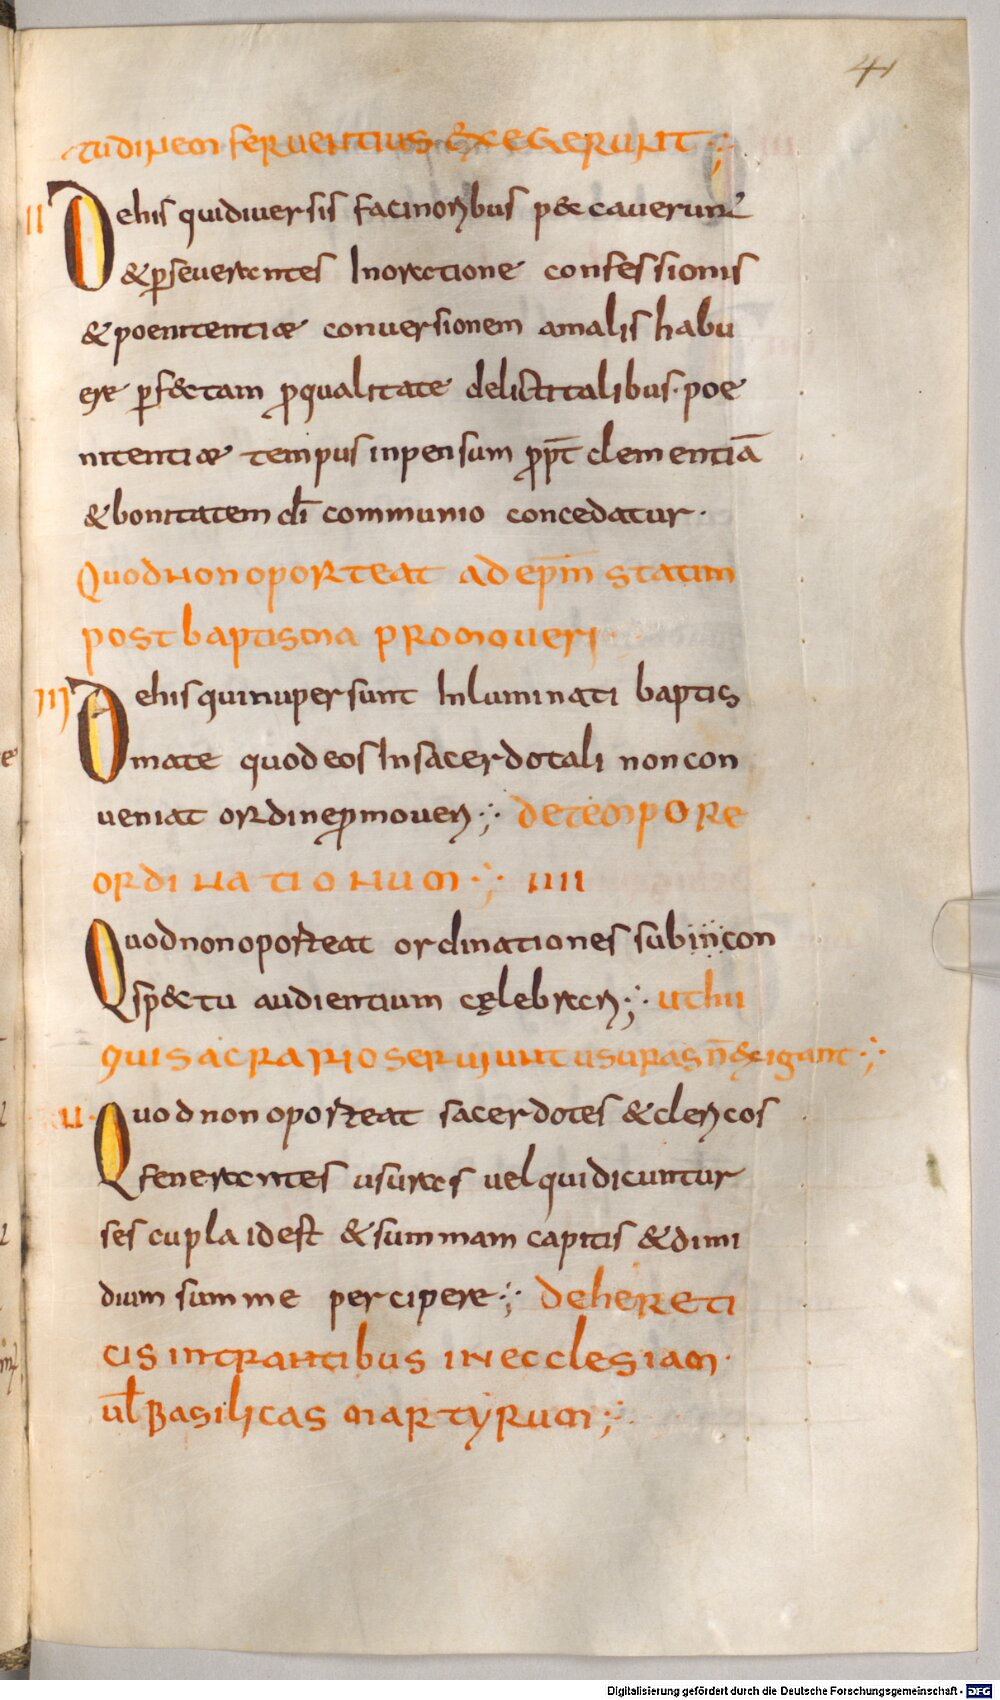 41
tudinem feruentius exegerunt
II Dehis quidiuersis facinoribus p&caueruNT
&p̱seuerantes Inoratione confessionis
&poenitentiae conuersionem amalis habu
ere p̱f&ctam p̱qualitate delicti talibus· poe
nitentiae tempus inpensum pp̄t clementiā
&bonitatem dī communio concedatur·
Quod non oporteat ad ep̄m statim
post baptisma promoueri
III Dehis quinuper sunt Inluminati baptis
mate quod eos Insacerdotali non con
ueniat ordine p̱moueri; de tempore
ordinationum; IIII
Quod non oporteat ordinationes sub incon
sp&ctu audientium cęlebrari; ut hii
qui sacrario seruiunt usuras n̄ exigant;
U Quod non oporteat sacerdotes &clericos
fenerantes usuras uel qui dicuntur
sescupla id est &summam capitis &dimi
dium summe percipere; de hereti
cis intrantibus in ecclesiam·
ul̄ Basilicas martyrum;
Digitalisierung gefördert durch die Deutsche Forschungsgemeinschaft - DFG